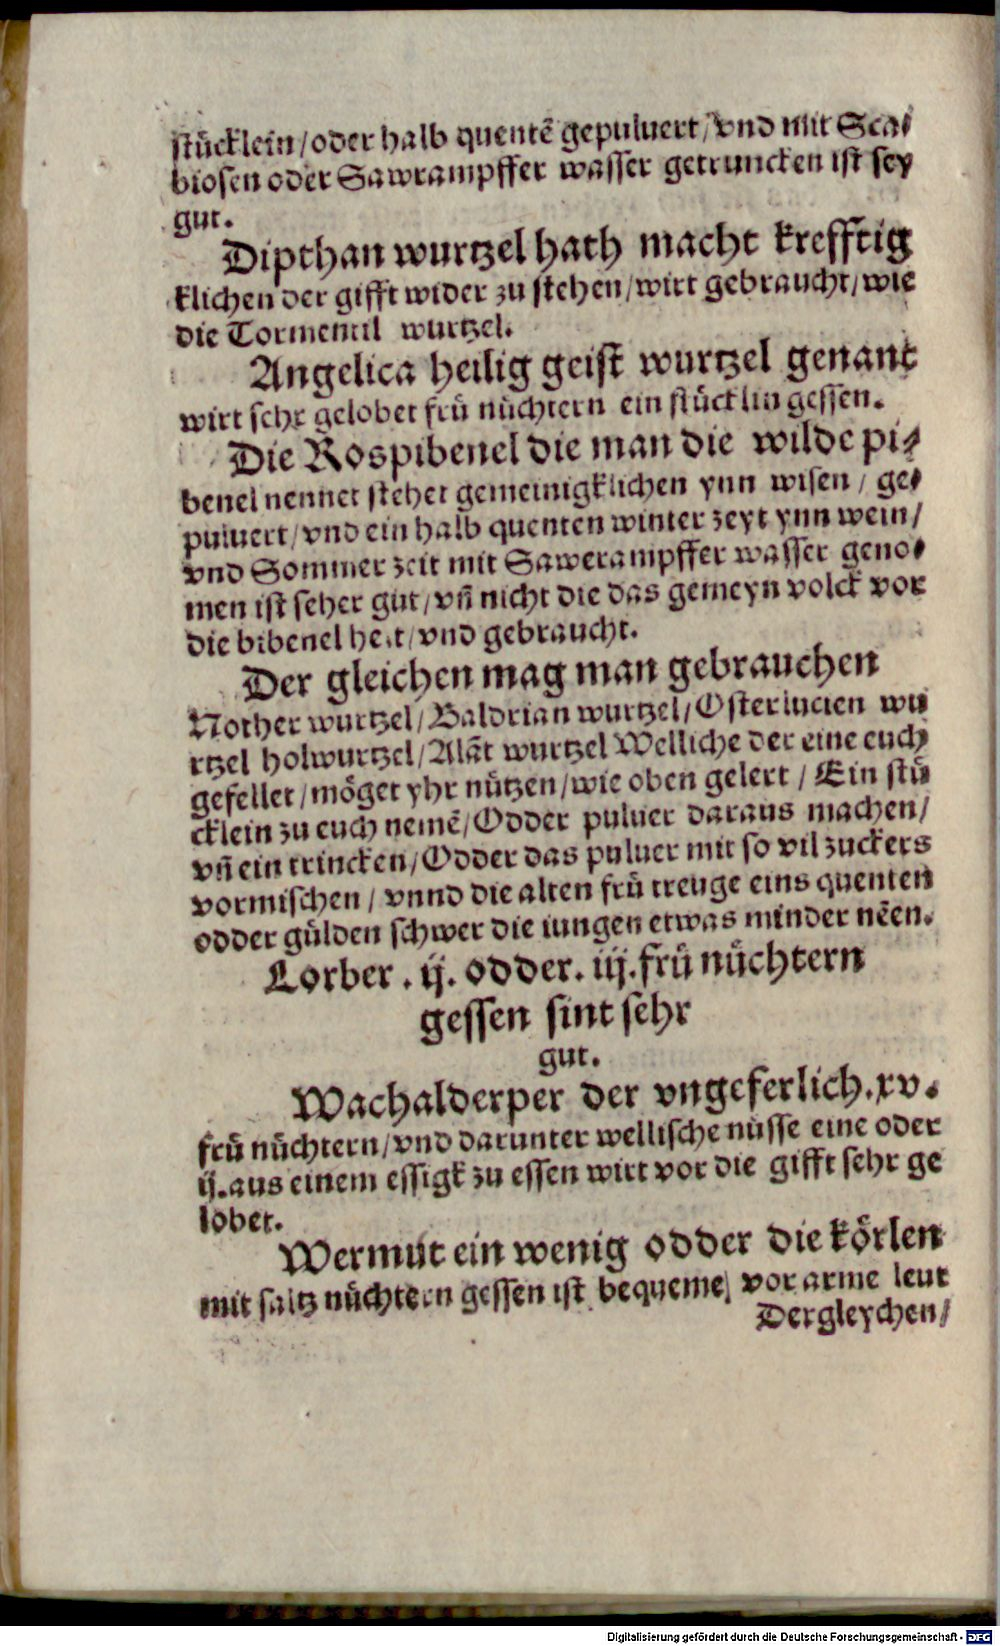 stücklein/oder halb quentē gepuluert/vnd mit Sca⸗
biosen oder Sawrampffer wasser getruncken ist sey
gut.
Dipthan wurtzel hath macht krefftig
klichen der gifft wider zu stehen/wirt gebraucht/wie
die Tormentil wurtzel.
Angelica heilig geist wurtzel genant
wirt sehr gelobet frü nüchtern ein stücklin gessen.
Die Rospibenel die man die wilde pi⸗
benel nennet stehet gemeinigklichen ynn wisen / ge⸗
puluert/vnd ein halb quenten winter zeyt ynn wein/
vnd Sommer zeit mit Sawerampffer wasser geno⸗
men ist seher gut/vñ nicht die das gemeyn volck vor
die bibenel helt/vnd gebraucht.
Der gleichen mag man gebrauchen
Nother wurtzel/Baldrian wurtzel/Osterlucien wu
rtzel holwurtzel/Alāt wurtzel Welliche der eine euch
gefellet/möget yhr nützen/wie oben gelert / Ein stü
cklein zu euch nemē/Odder puluer daraus machen/
vñ ein trincken/Odder das puluer mit so vil zuckers
vormischen / vnnd die alten frü treuge eins quenten
odder gülden schwer die iungen etwas minder nēen.
Lorber . ij. odder. iij. frü nüchtern
gessen sint sehr
gut.
Wachalderper der vngeferlich.xv.
frü nüchtern/vnd darunter wellische nusse eine oder
ij.aus einem essigk zu essen wirt vor die gifft sehr ge
lobet.
Wermut ein wenig odder die körlen
mit saltz nüchtern gessen ist bequeme/ vor arme leut
Dergleychen/
Digitalisierung gefördert durch die Deutsche Forschungsgemeinschaft - DFG